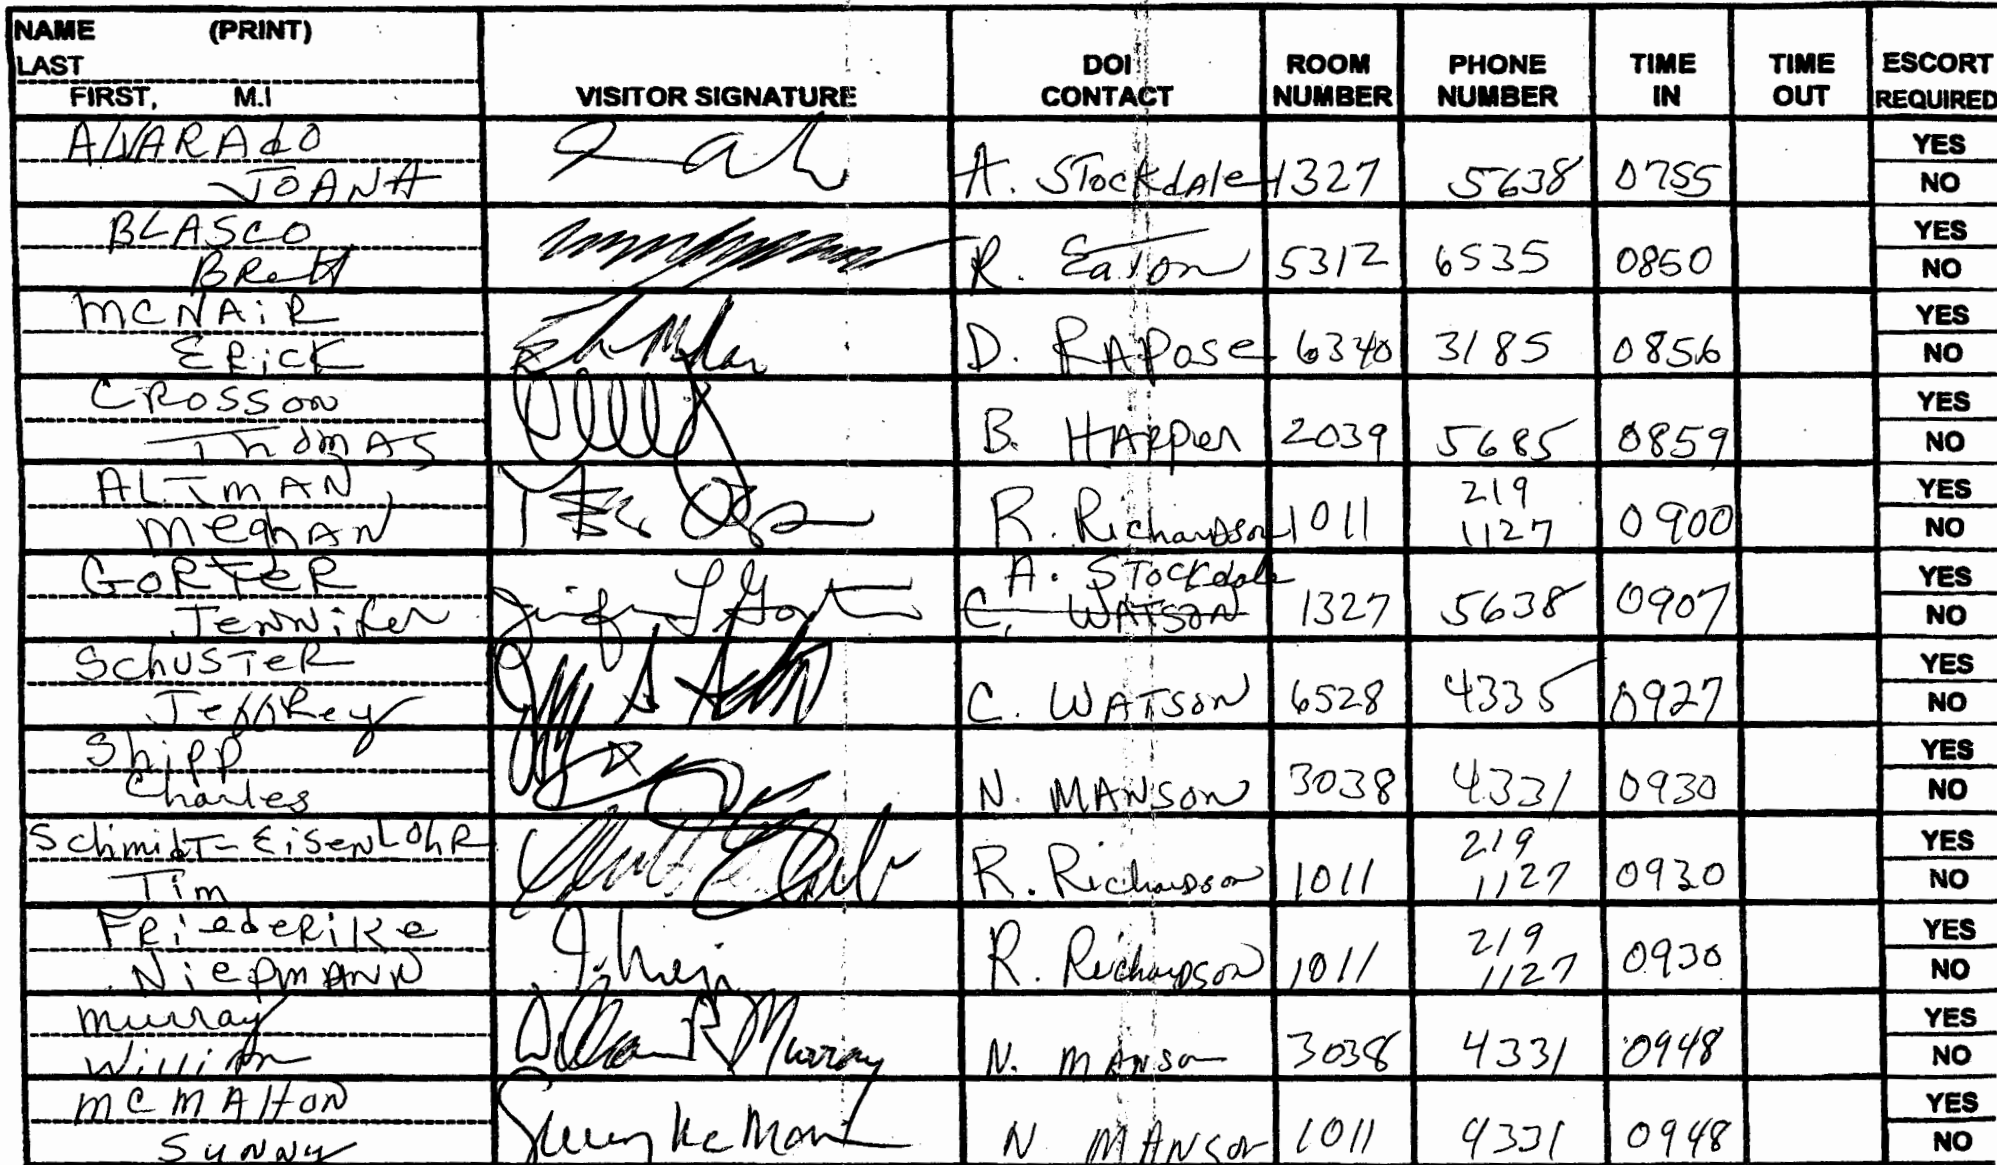 NAME (PRINT)
LAST
FIRST, M.I
VISITOR SIGNATURE
DOI CONTACT
ROOM NUMBER
PHONE NUMBER
TIME IN
TIME OUT
ESCORT REQUIRED
ALVARAdO
JOANA
A. STockdAle 1327 5638 0755
YES
NO
BLASCO
BRett
R. Eaton 5312 6535 0850
YES
NO
MCNAiR
ERicK
D. RAPose 6340 3185 0856
YES
NO
CROSSON
ThomAS
B. HARper 2039 5685 0859
YES
NO
ALTMAN
MeghAN
R. Richardson 1011 219 1127 0900
YES
NO
GORTER
JeNNifer
Jennifer L Gorter
A. STockdale
C. WATSON 1327 5638 0907
YES
NO
SchUSTeR
JeffRey
C. WATSON 6528 4335 0927
YES
NO
Shipp
Charles
N. MANSON 3038 4331 0930
YES
NO
SchmidT-EiSeNLOhR
Tim
R. Richardson 1011 219 1127 0930
YES
NO
FRiedeRiKe
NiepmANN
R. Richardson 1011 219 1127 0930
YES
NO
Murray
William
William R Murray
N. MANSON 3038 4331 0948
YES
NO
MCMAHON
SUNNY
Sunny McMahon
N. MANSON 1011 4331 0948
YES
NO